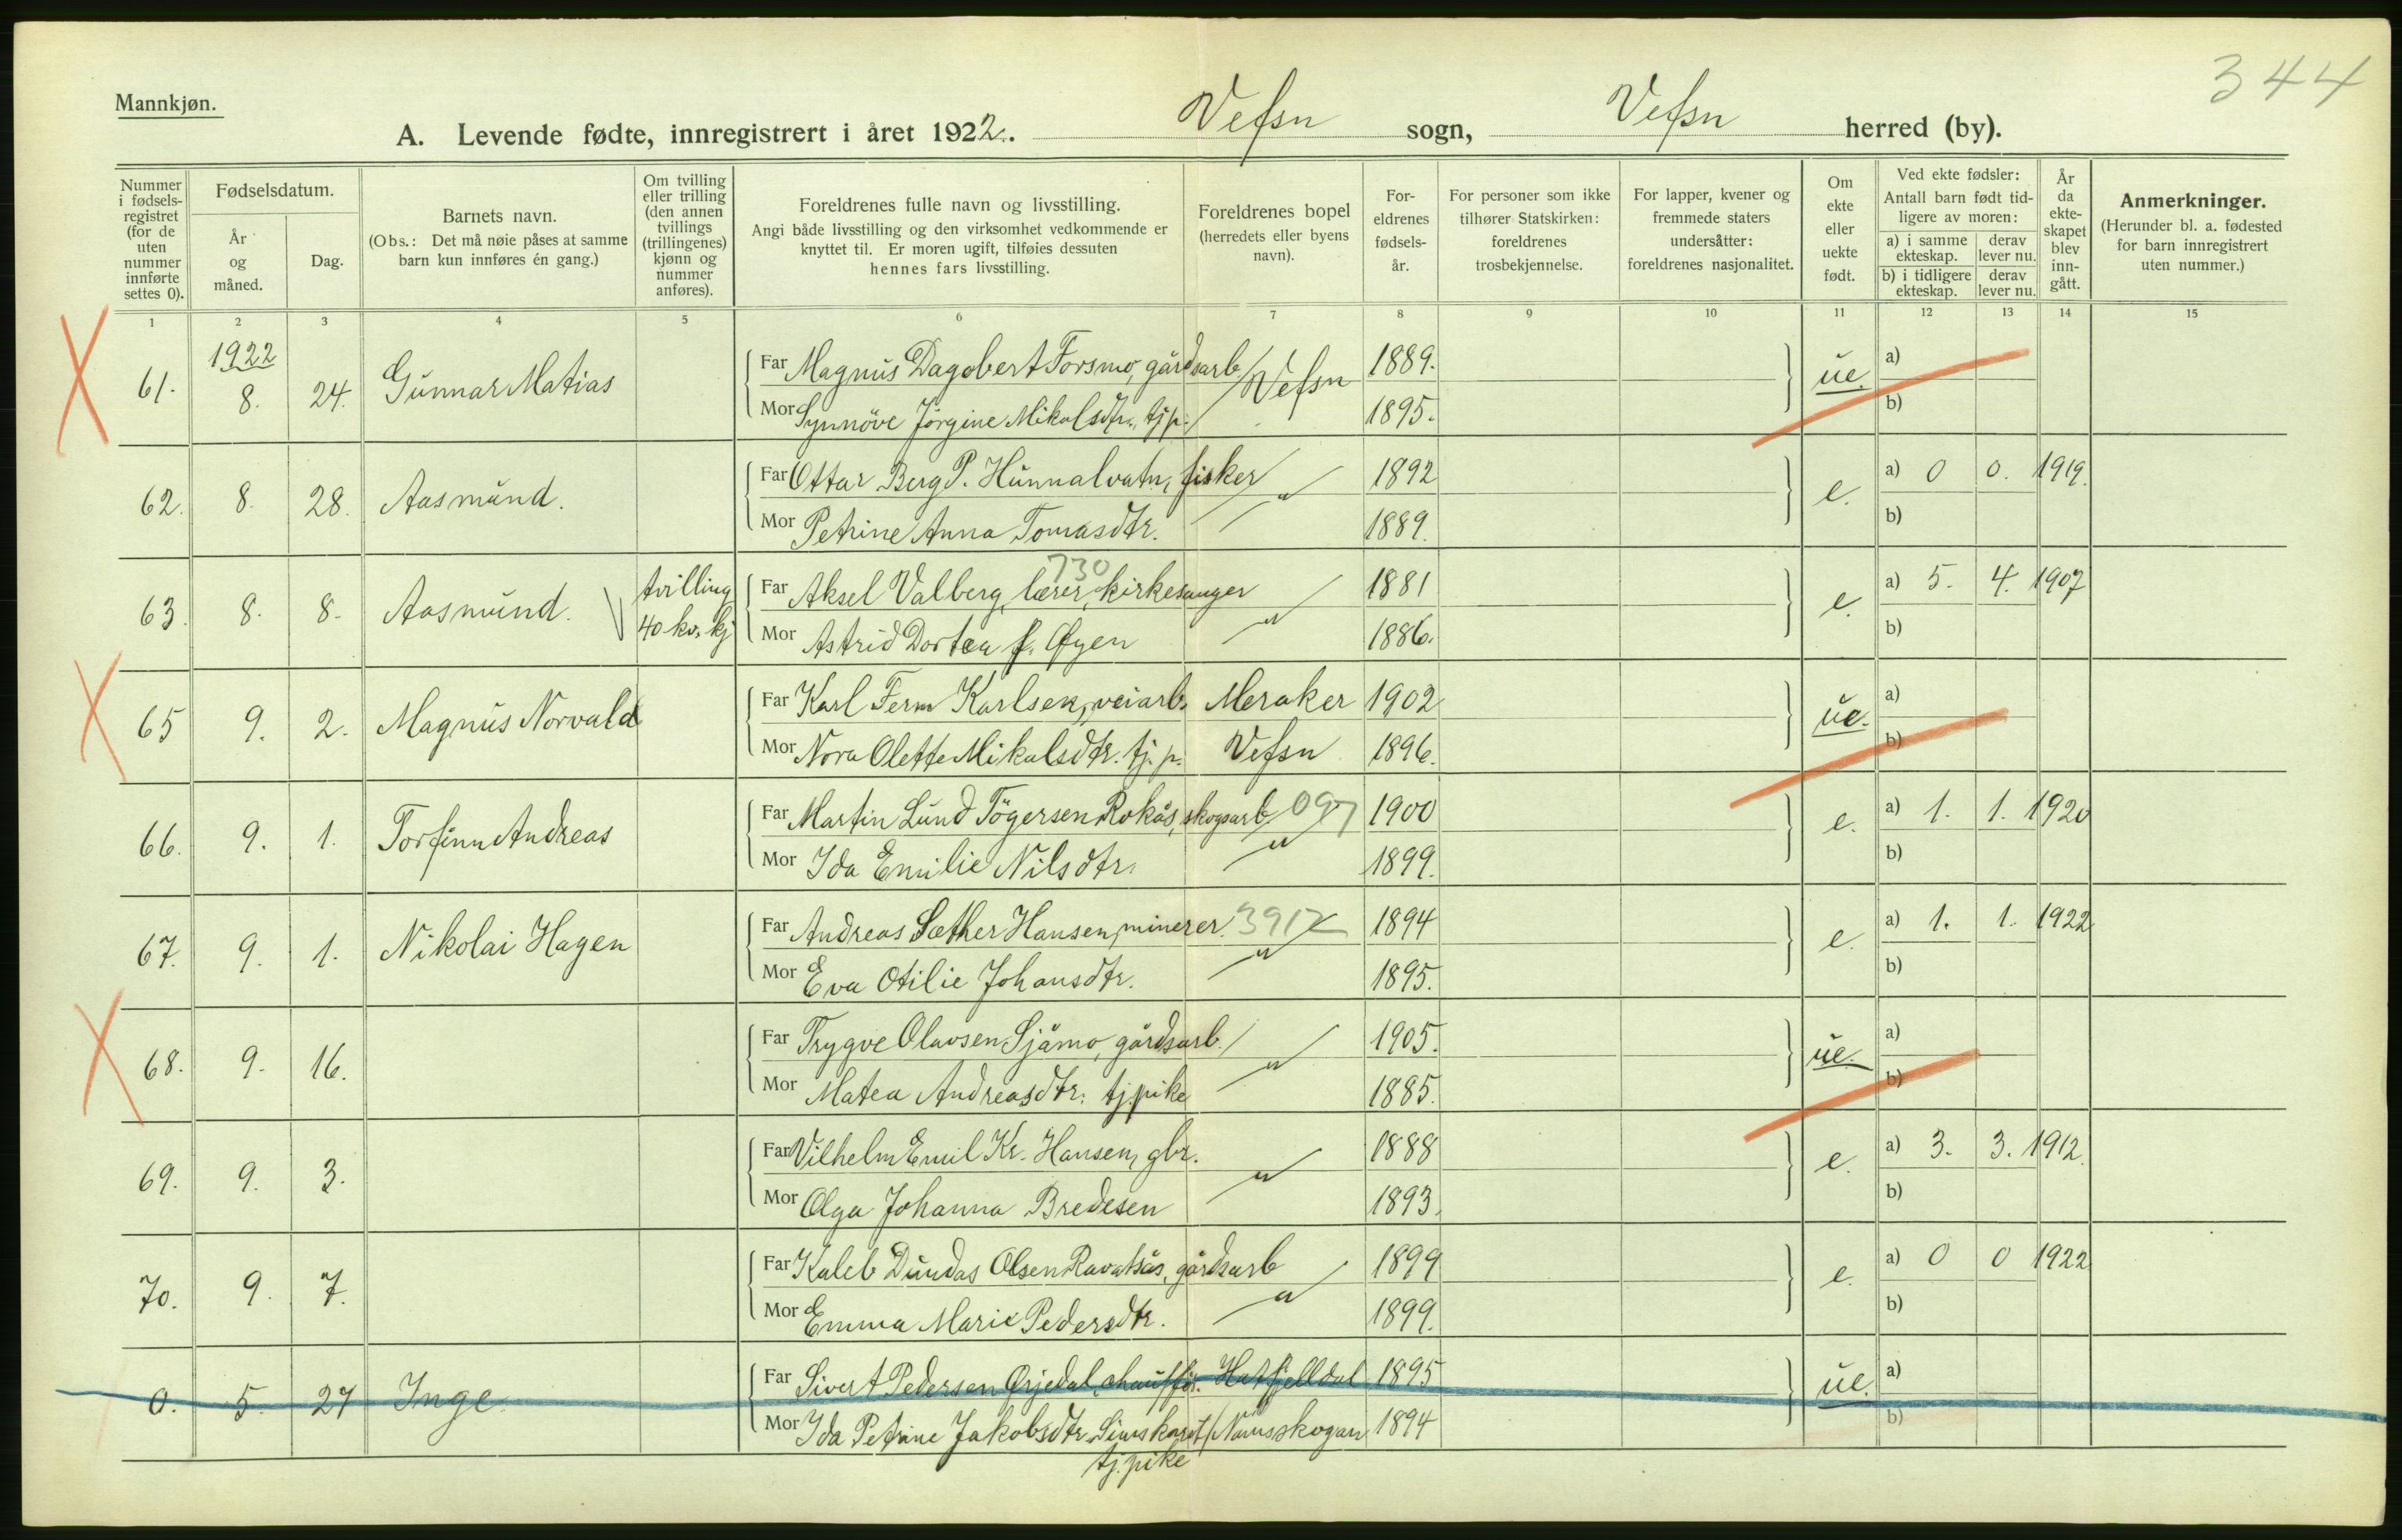 344
Mannkjøn.
A. Levende fødte, innregistrert i året 1922. Vefsn sogn, Vefsn herred (by).
Nummer i fødselsregistret (for de uten nummer innførte settes 0).
Fødselsdatum.
År og måned.
Dag.
Barnets navn.
(Obs.: Det må nøie påses at samme barn kun innføres én gang.)
Om tvilling eller trilling (den annen tvillings (trillingenes) kjønn og nummer anføres).
Foreldrenes fulle navn og livsstilling.
Angi både livsstilling og den virksomhet vedkommende er knyttet til. Er moren ugift, tilføies dessuten hennes fars livsstilling.
Foreldrenes bopel (herredets eller byens navn).
Foreldrenes fødselsår.
For personer som ikke tilhører Statskirken: foreldrenes trosbekjennelse.
For lapper, kvener og fremmede staters undersåtter: foreldrenes nasjonalitet.
Om ekte eller uekte født.
Ved ekte fødsler:
Antall barn født tidligere av moren:
a) i samme ekteskap. derav lever nu.
b) i tidligere ekteskap. derav lever nu.
År da ekteskapet blev inngått.
Anmerkninger.
(Herunder bl. a. fødested for barn innregistrert uten nummer.)
1 2 3 4 5 6 7 8 9 10 11 12 13 14 15
1922
61. 8. 24. Gunnar Matias Far Magnus Dagobert Forsmo, gårdsarb. Vefsn 1889. ue. a)
Mor Synnöve Jörgine Mikalsdtr., tj.p. 1895. b)
62. 8. 28. Aasmund. Far Ottar Berg P. Hunnalvatn, fisker 1892 e. a) 0 0. 1919.
Mor Petrine Anna Tomasdtr. " 1889. b)
730
63. 8. 8. Aasmund. tvilling 40 kv. kj Far Aksel Valberg, lærer, kirkesanger 1881 e. a) 5. 4. 1907
Mor Astrid Dortea f. Øyen " 1886. b)
65 9. 2. Magnus Norvald Far Karl Ferm Karlsen, veiarb. Meraker 1902 ue. a)
Mor Nora Olette Mikalsdtr. tj.p. Vefsn 1896. b)
66. 9. 1. Torfinn Andreas Far Martin Lund Tögersen Rokås, skogsarb. 097 1900 e. a) 1. 1. 1920
Mor Ida Emilie Nilsdtr. " 1899. b)
67. 9. 1. Nikolai Hagen Far Andreas Sæther Hansen, minerer. 3912 1894 e. a) 1. 1. 1922
Mor Eva Otilie Johansdtr. " 1895. b)
68. 9. 16. Far Trygve Olavsen Sjåmo, gårdsarb. 1905. ue. a)
Mor Matea Andreasdtr. tj.pike " 1885. b)
69. 9. 3. Far Vilhelm Emil Kr. Hansen, gbr. 1888 e. a) 3. 3. 1912.
Mor Olga Johanna Bredesen " 1893. b)
70. 9. 7. Far Kaleb Dundas Olsen Ravatsås, gårdsarb 1899 e. a) 0 0 1922
Mor Emma Marie Pedersdtr. " 1899. b)
0. 5. 27 Inge Far Sivert Pedersen Ørjedal, chauffør. Hatfjelldal 1895 ue. a)
Mor Ida Petrine Jakobsdtr. Simskaret / Namsskogan 1894 b)
tj.pike